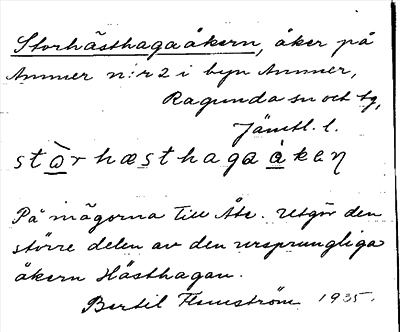 Storhästhagaåkern, åker på
Ammer n:r 2 i byn Ammer,
Ragunda sn och tg,
Jämtl. l.
stò̱rhæsthagaà̱keɳ
På ägorna till Åte. Utgör den
större delen av den ursprungliga
åkern Hästhagan.
Bertil Flemström 1935.